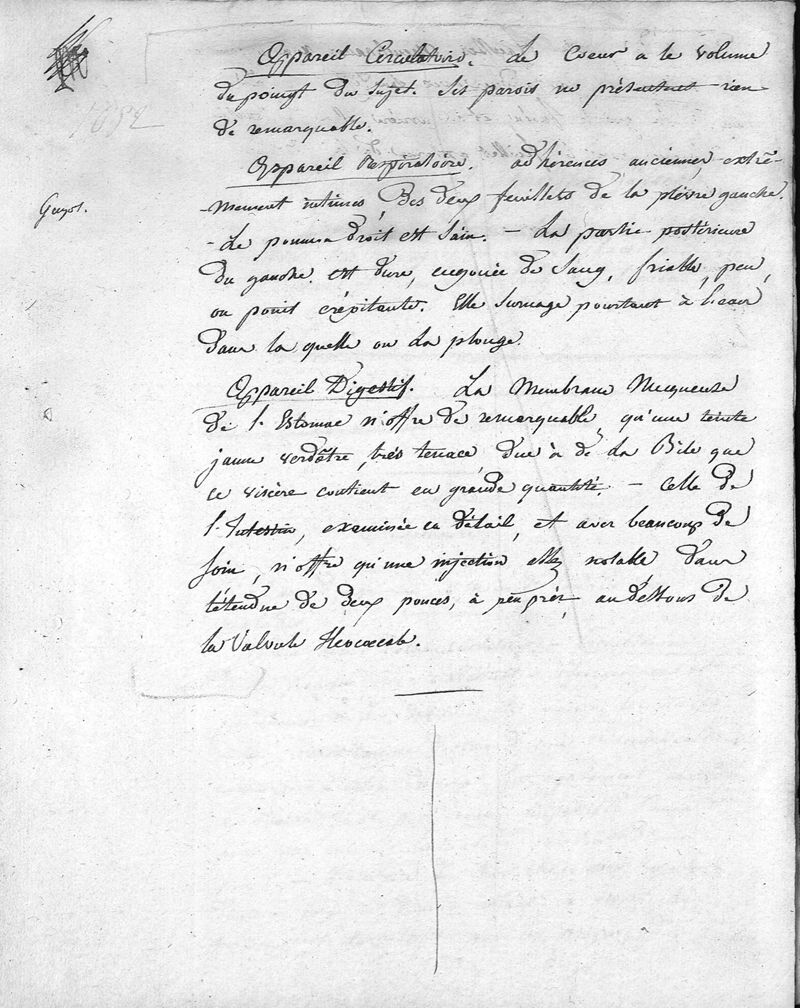 Appareil Circulatoire. Le Coeur a le volume
du poingt du sujet. Ses parois ne présentent rien
de remarquable.
Appareil Respiratoire. adhérences anciennes, extrê-
Guyot.
-mement intimes, Des deux feuillets de la plèvre gauche.
- Le poumon droit est Sain. - La partie postérieure
Du gauche est dure, engouée de Sang, friable, peu,
ou point crépitante. Elle surnage pourtant à l'eau
Dans la quelle on La plonge.
Appareil Digestif. La Membrane Muqueuse
de l'Estomac n'offre de remarquable, qu'une teinte
jaune verdâtre, très tenace, due à de La Bile que
ce viscère contient en grande quantité. - Celle de
l'Intestin, examinée en détail, et avec beaucoup de
soin, n'offre qu'une injection assez notable dans
l'étendue de deux pouces, à peu près, au dessous de
la Valvule Iléocoecale.